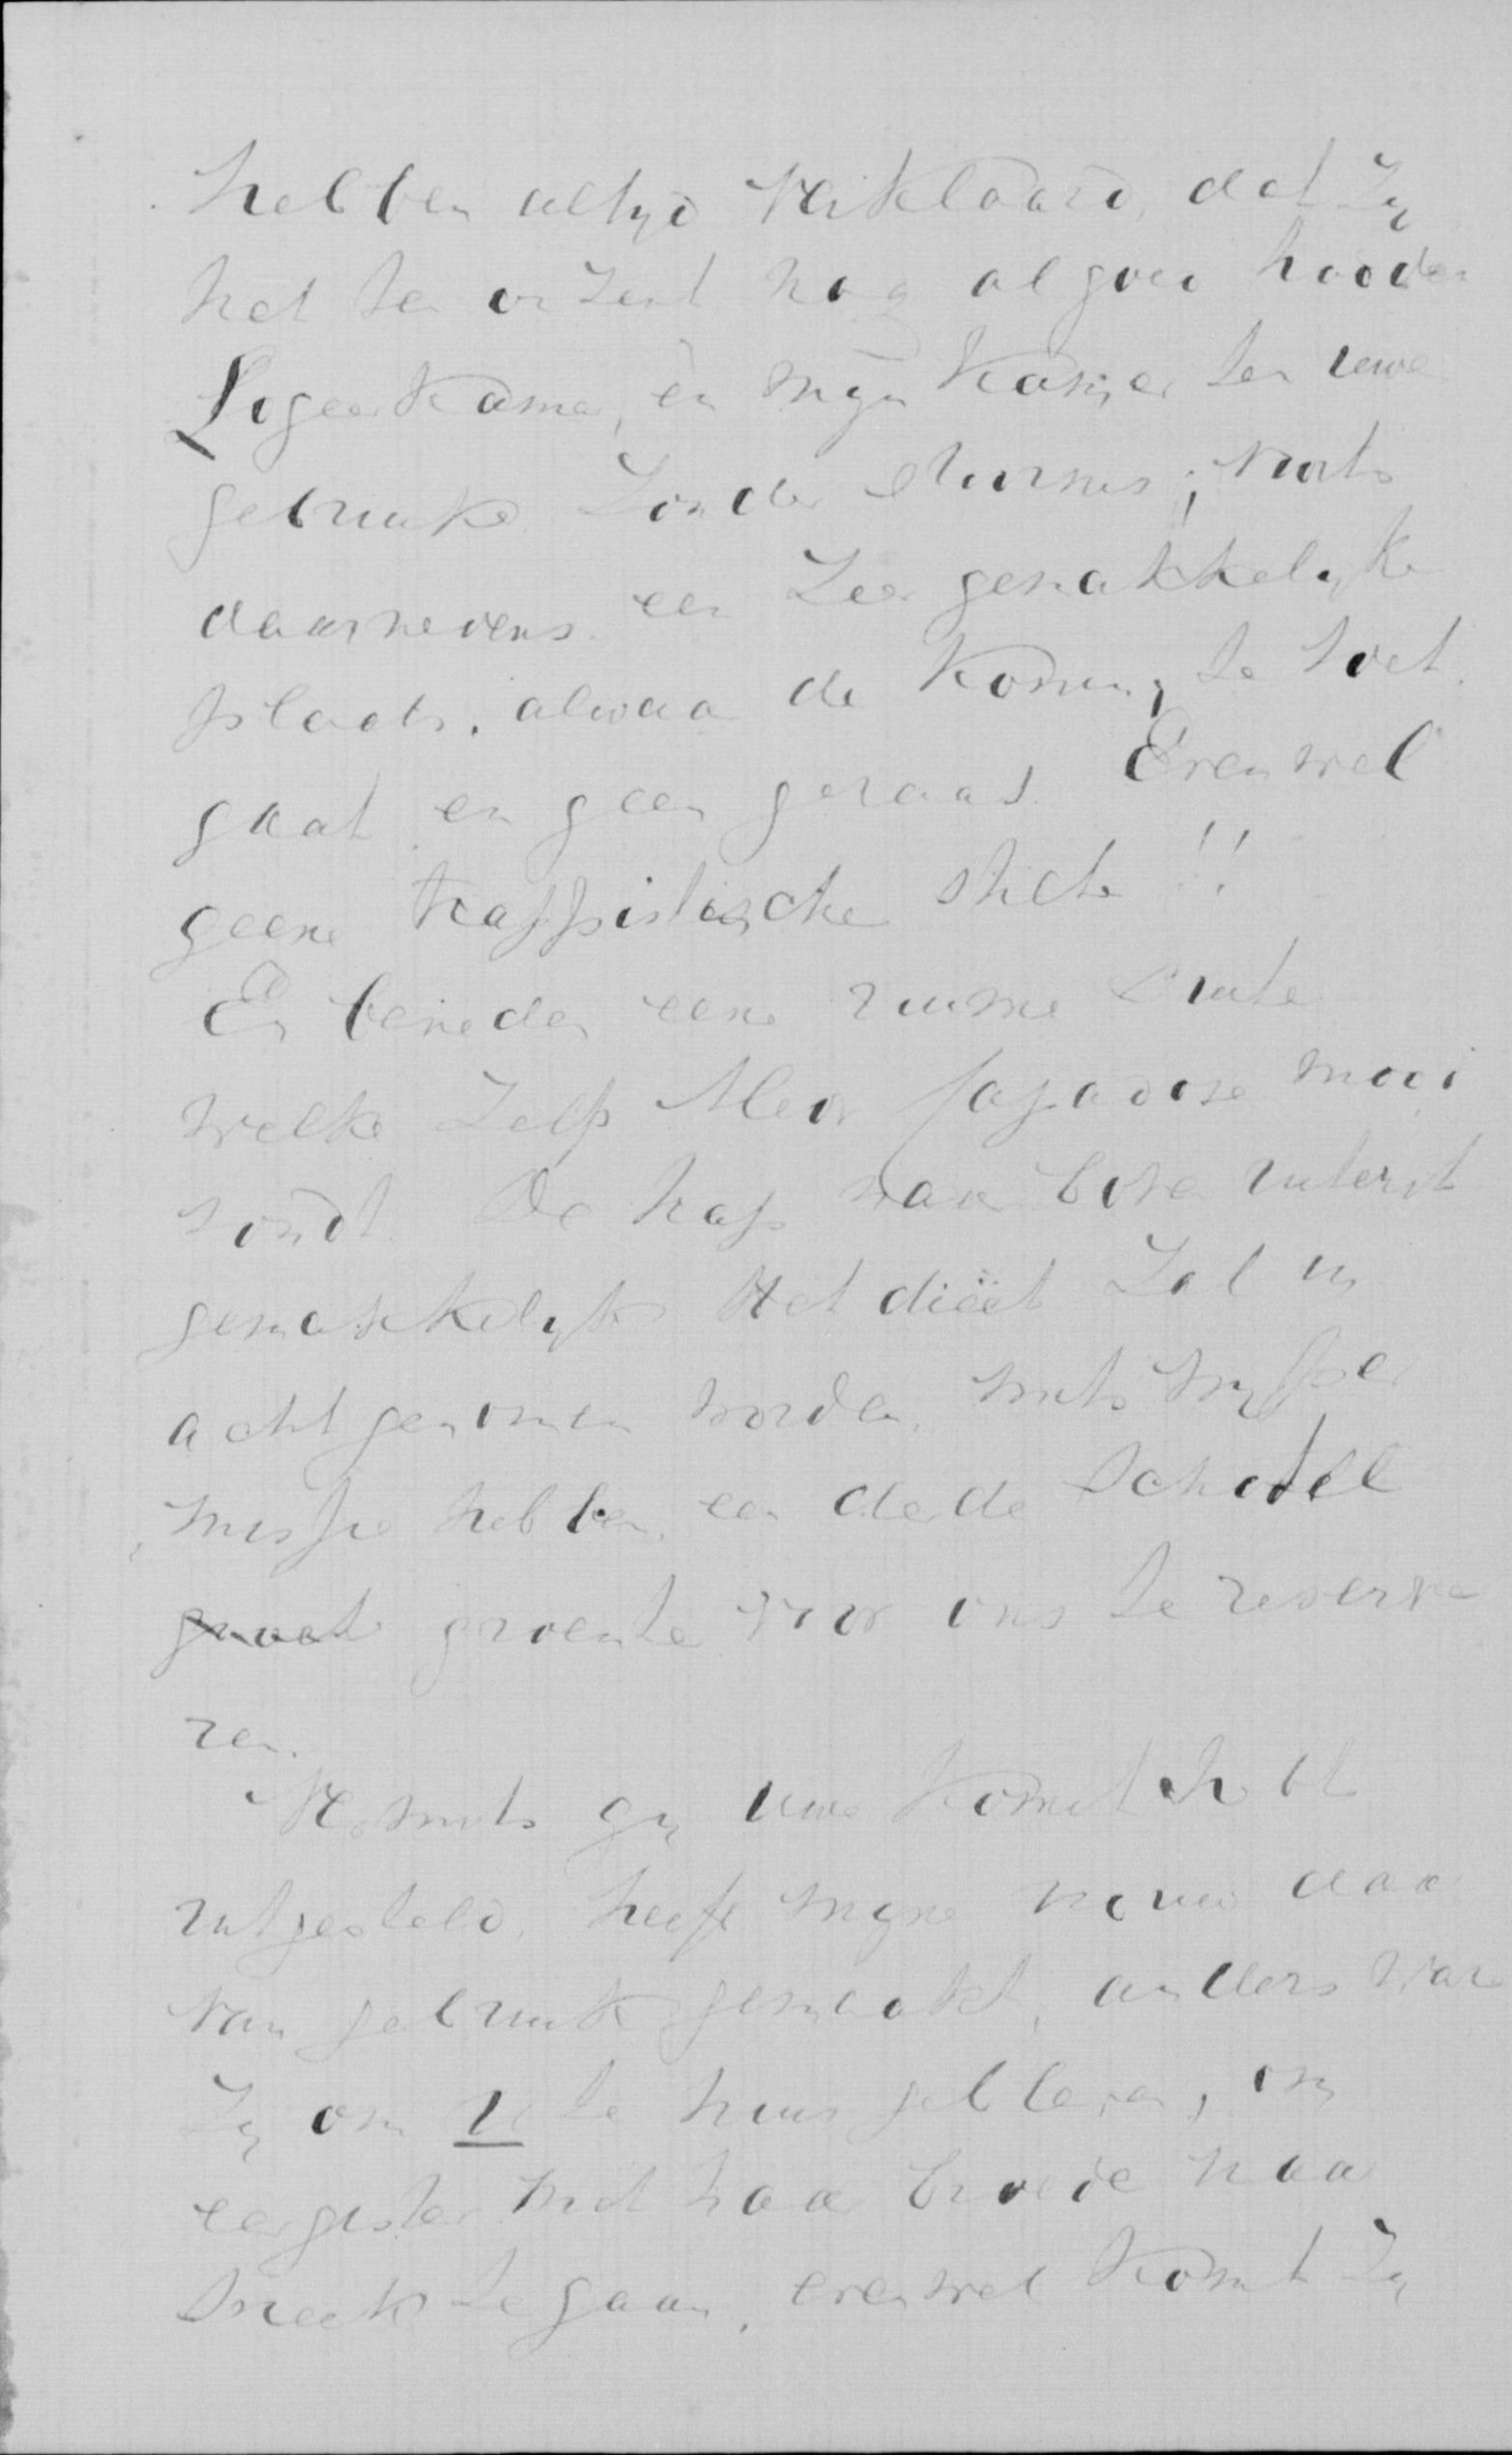 hebben altyd verklaard, dat zy
het ten onzent nog al goed hadden
Logeerkamer, en myn kamer ten uwe
gebruike zonder stoornis; voorts
daarnevens een zeer gemakkelyke
plaats, alwaar de Koning te voet
gaat en geen geraas. Evenwel
geene trappistische stilte!!
En beneden eene ruime suite
welke zelfs Mevr mooi
vondt. De trap naar boven uiterst
gemakkelyk. Het diëet zal in
acht genomen worden, mits wy per
missie hebben, een derde schotel
groente voor ons te reserve
ren.
Vermits gy uwe komst hebt
uitgesteld, heeft myne vrouw daar
van gebruik gemaakt, anders ware
zy om U te huis gebleven, om
eergister met haar broeder naar
Sneek te gaan, evenwel komt zy